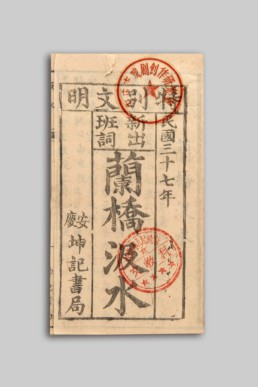 特別文明
民國三十七年
新出
班詞
蘭橋汲水
安慶
坤記書局